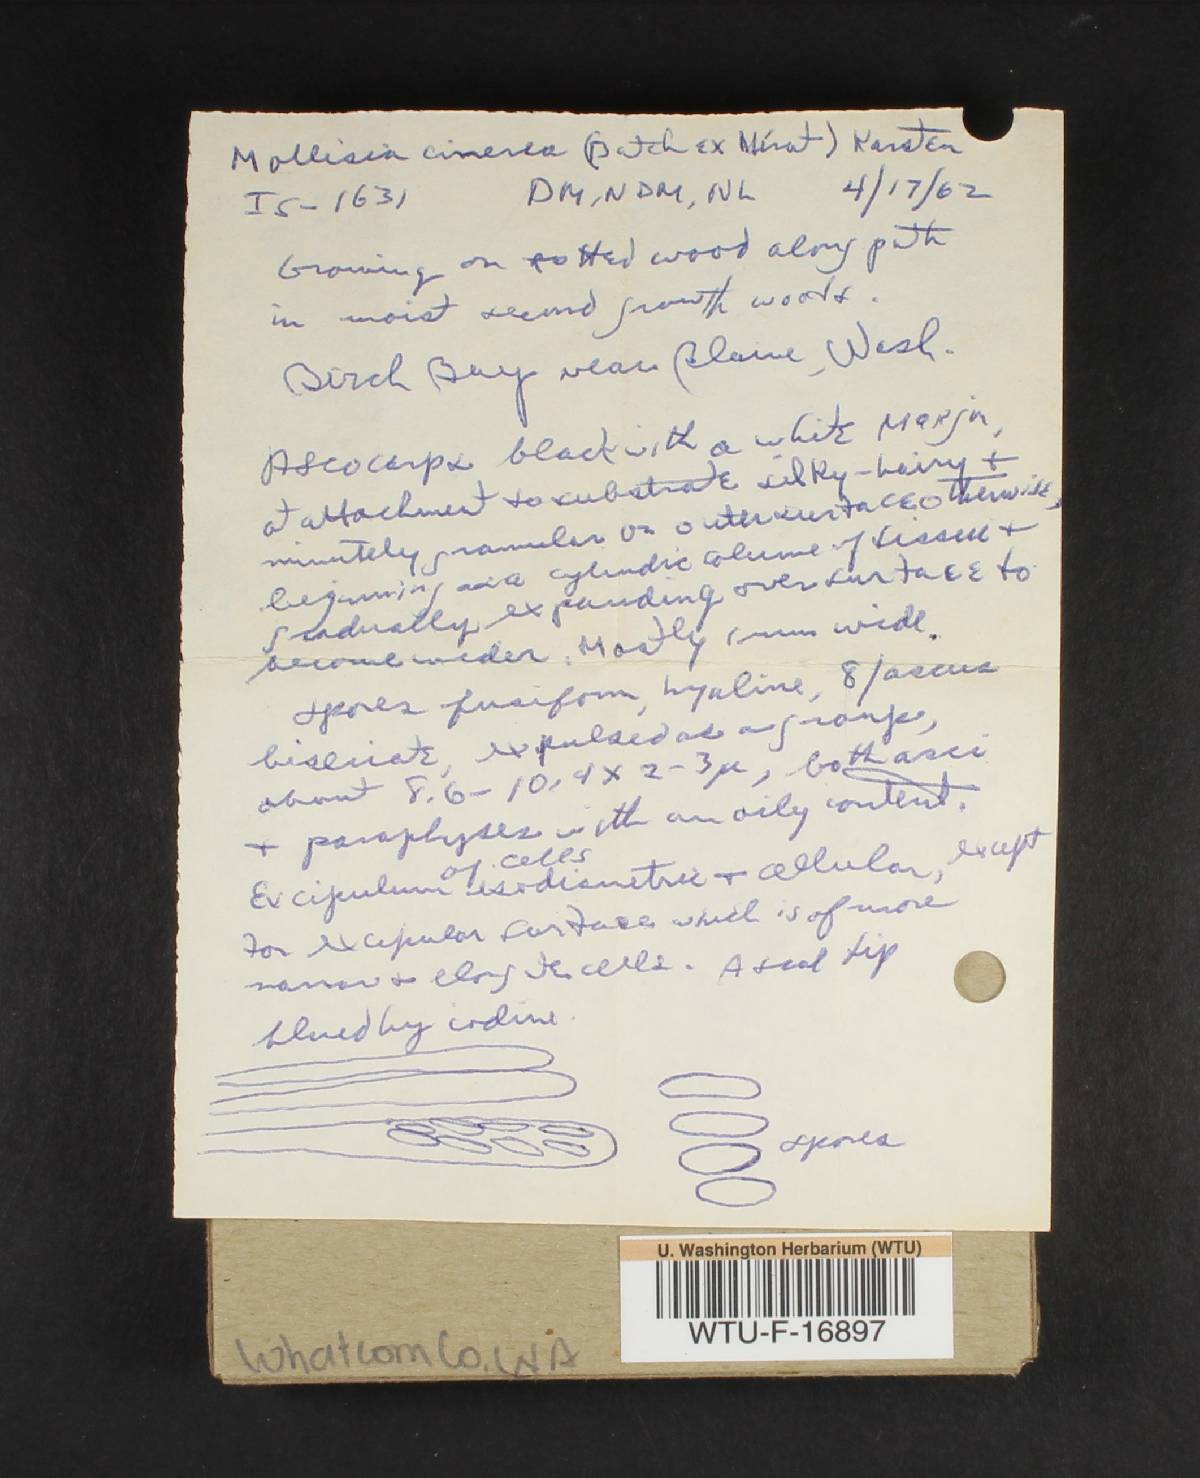 Mollisia cinerea (Batch ex Mérat) Karsten
IS-1631 DM, NDM, NL 4/17/62
Growing on rotted wood along path
in moist second growth woods.
Birch Bay near Blaine, Wash.
Ascocarps black with a white margin,
at attachment to substrate silky-hairy +
minutely granular on outer surface otherwise,
beginning as a cylindric column of tissue +
gradually expanding over surface to
become wider. Mostly 1 mm wide.
Spores fusiform, hyaline, 8/ascus
biseriate, expulsed as a group,
about 8.6-10.4 x 2-3µ, both asci
+ paraphyses with an oily content.
of cells
Excipulum isodiametric + cellular, except
for excipular surface which is of more
narrow + elongate cells. Ascal tip
blued by iodine.
spores
U. Washington Herbarium (WTU)
WTU-F-16897
Whatcom Co. WA